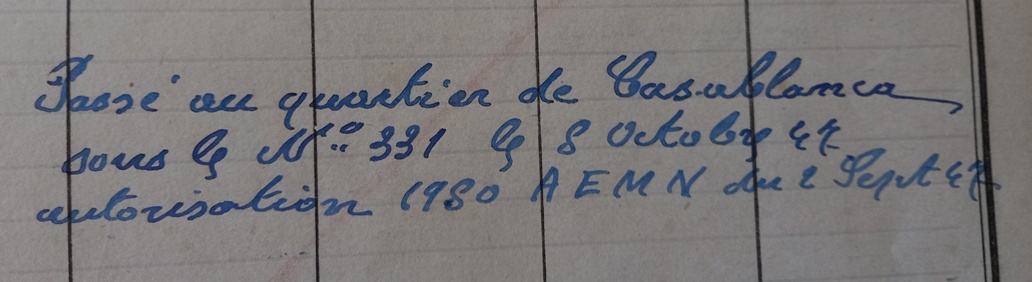 Passé au quartier de Casablanca
sous le N° 331 le 8 Octobre 47
autorisation 1980 A E M N du 2 Sept 47